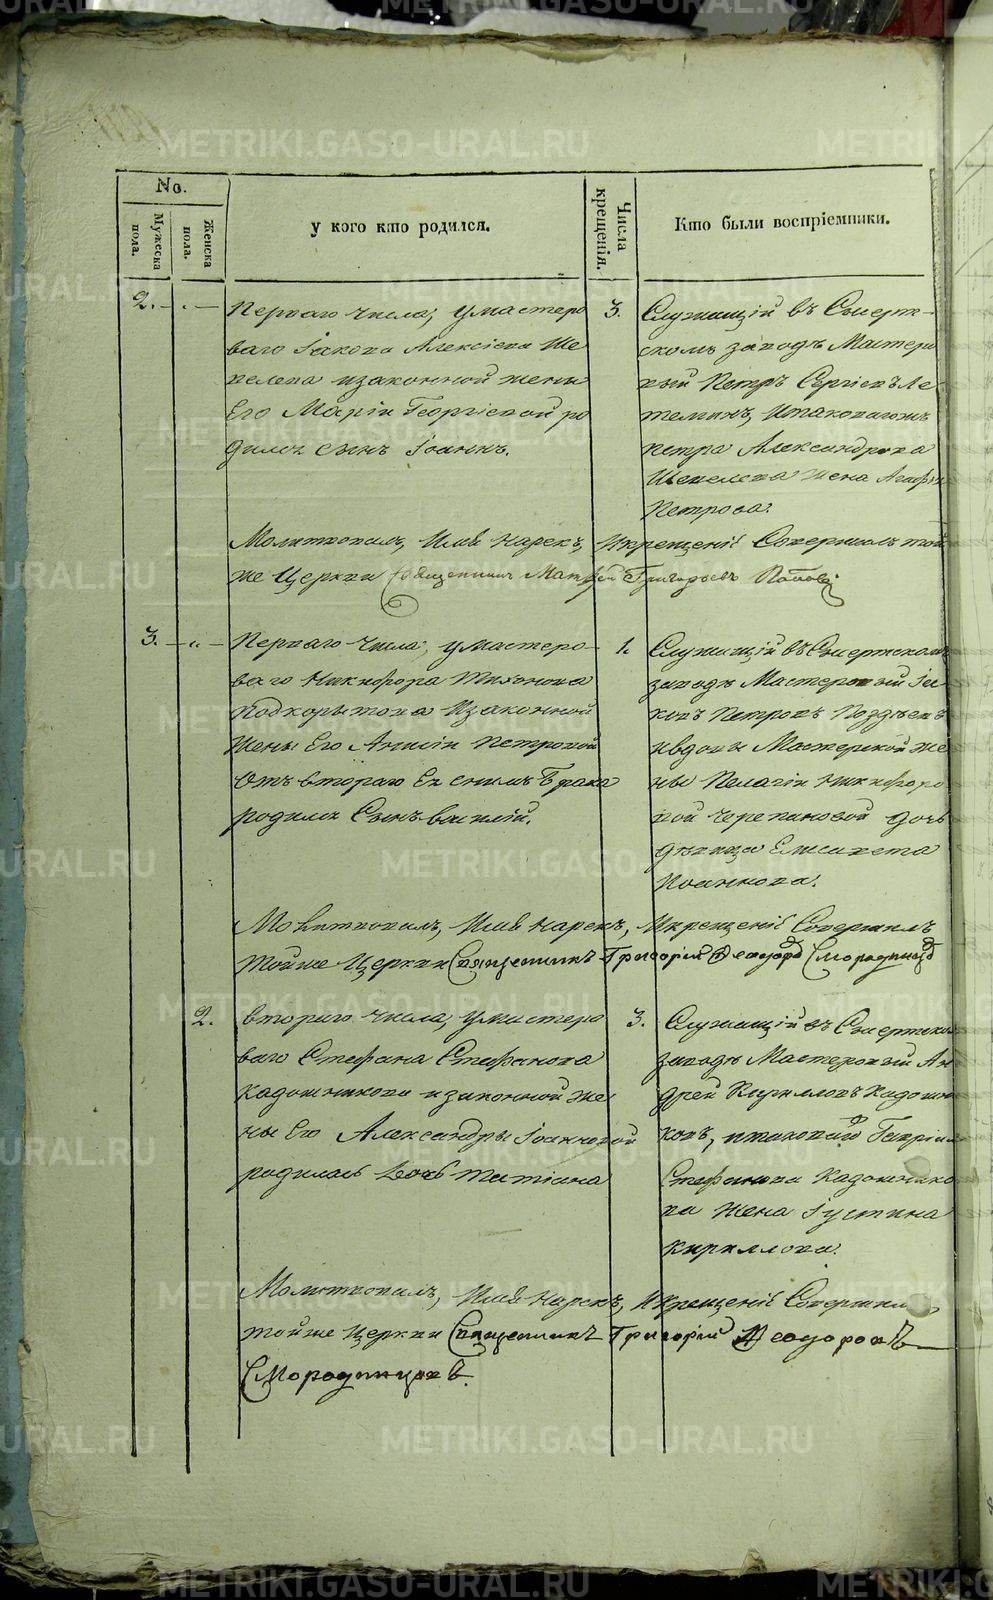 METRIKI.GASO-URAL.RU
No.
Мужеска пола.
Женска пола.
у кого кто родился.
Числа крещенія.
Кто были воспріемники.
2.
Перваго числа, у мастеро
ваго Іакова Алексіева Ше
пелева изаконной жены
Его Маріи Георгіевой ро
дился сынъ Іоаннъ.
3.
Служащій въ Сысерт-
скомъ заводѣ Мастеро
вый Петръ Сергіевъ Ле
теминъ, итаковагожъ
петра Александрова
Шепелева жена Агафья
Петрова.
Молитвовалъ, Имя нарекъ, Икрещеніе Совершилъ той
же Церкви Священникъ Матфей Григорьевъ Поповъ
3.
Перваго числа, у мастеро-
ваго Никифора Тихонова
Подкорытова Изаконной
жены Его Анисіи петровой
Отъ втораго Ея снимъ Брака
родился Сынъ василій.
1.
Служащій въ Сысертскомъ
заводѣ Мастеровый Іа-
ковъ Петровъ Поздѣевъ
ивдовы Мастерской же
ны Пелагіи Никифоро
вой Черепановой дочь
дѣвица Елисавета
Іоаннова.
Молитвовалъ, Имя нарекъ, Икрещеніе Совершилъ
тойже Церкви Священникъ Григорій Ѳеодоровъ Смородинцовъ
2.
втораго числа, у мастеро
ваго Стефана Стефанова
Кадошникова изаконной же
ны Его Александры Іоанновой
родилась Дочь Татіана
3.
Служащій въ Сысертском
заводѣ Мастеровый Ан
дрей Кирилловъ Кадошни
ковъ, итаковагожъ Гавріила
Стефанова Кадошнико
ва Жена Іустина
Кириллова.
Молитвовалъ, Имя нарекъ, Икрещеніе Совершилъ
тойже Церкви Священникъ Григорій Ѳеодоровъ
Смородинцовъ.